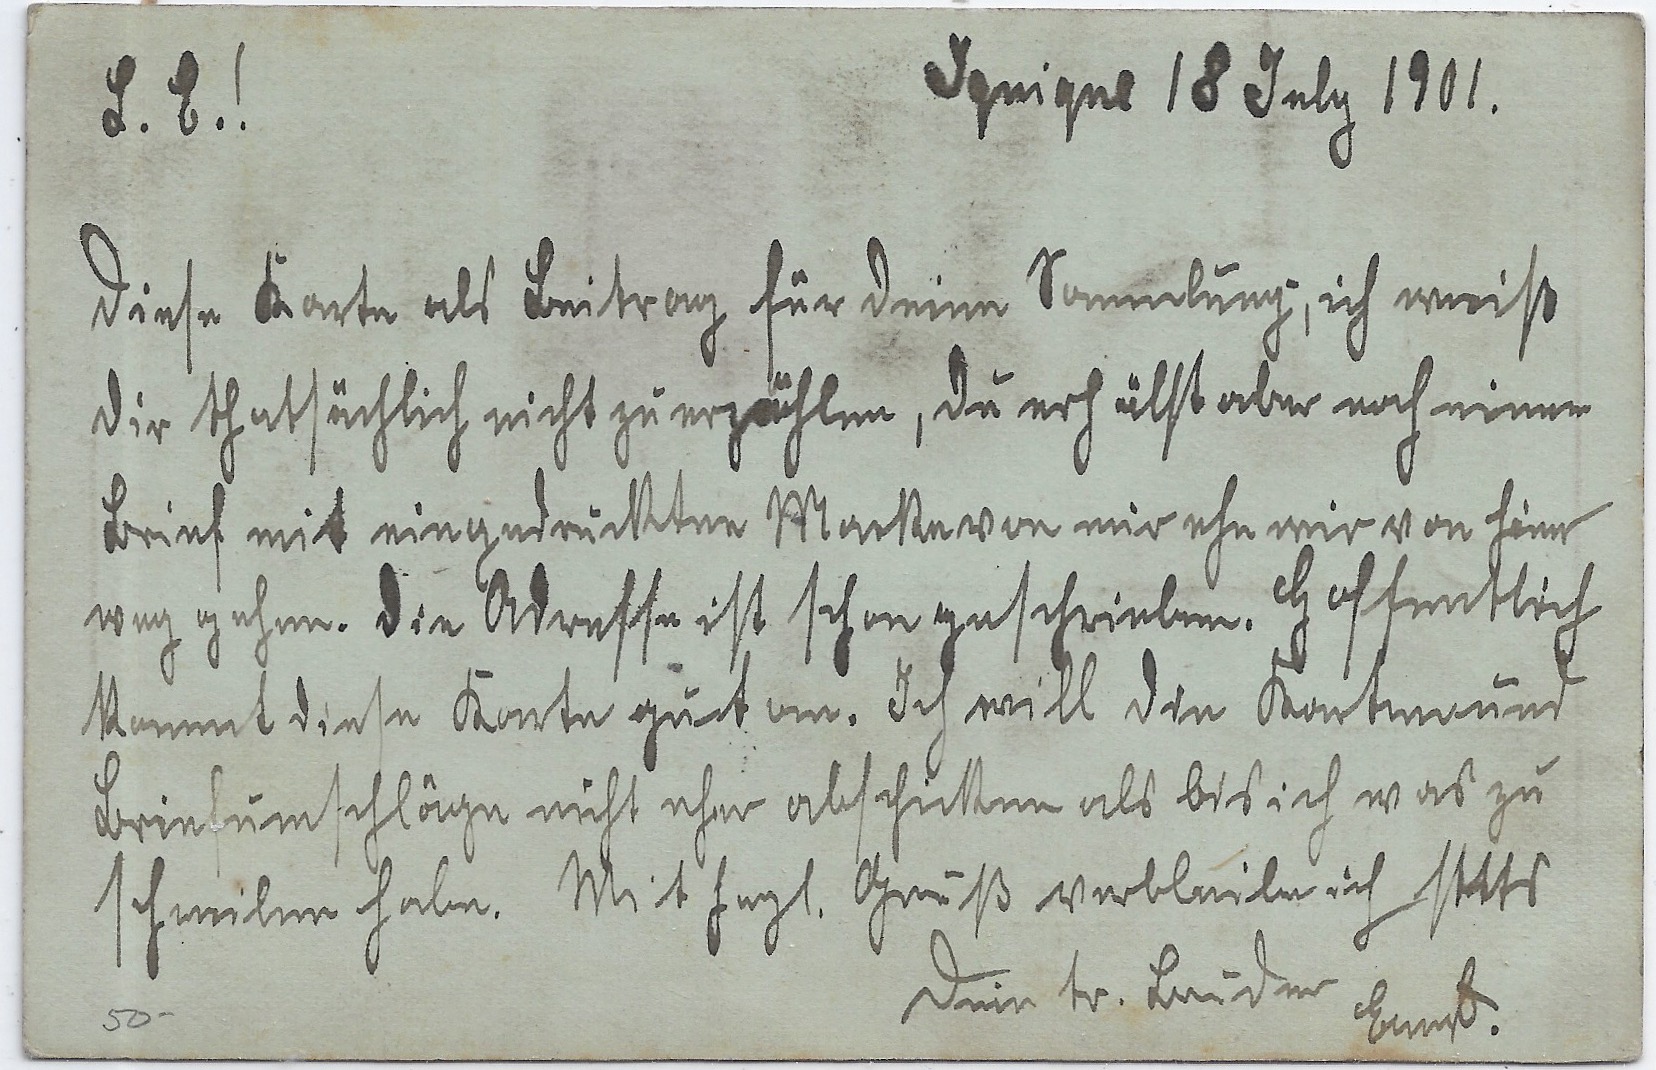 L. E.! Iquique 18 July 1901.
Diese Karte als Beitrag für deine Sammlung, ich weiß
dir thatsächlich nicht zu erzählen, du erhälst aber noch einen
Brief mit eingedruckten Marke von mir ehe wir von hier
weg gehen. Die Adresse ist schon geschrieben. Hoffentlich
kommt diese Karte gut an. Ich will die Karten und
Briefumschläge nicht eher abschicken als bis ich was zu
schreiben habe. Mit herzl. Gruß verbleibe ich stets
Dein tr. Bruder Ernst.
50-